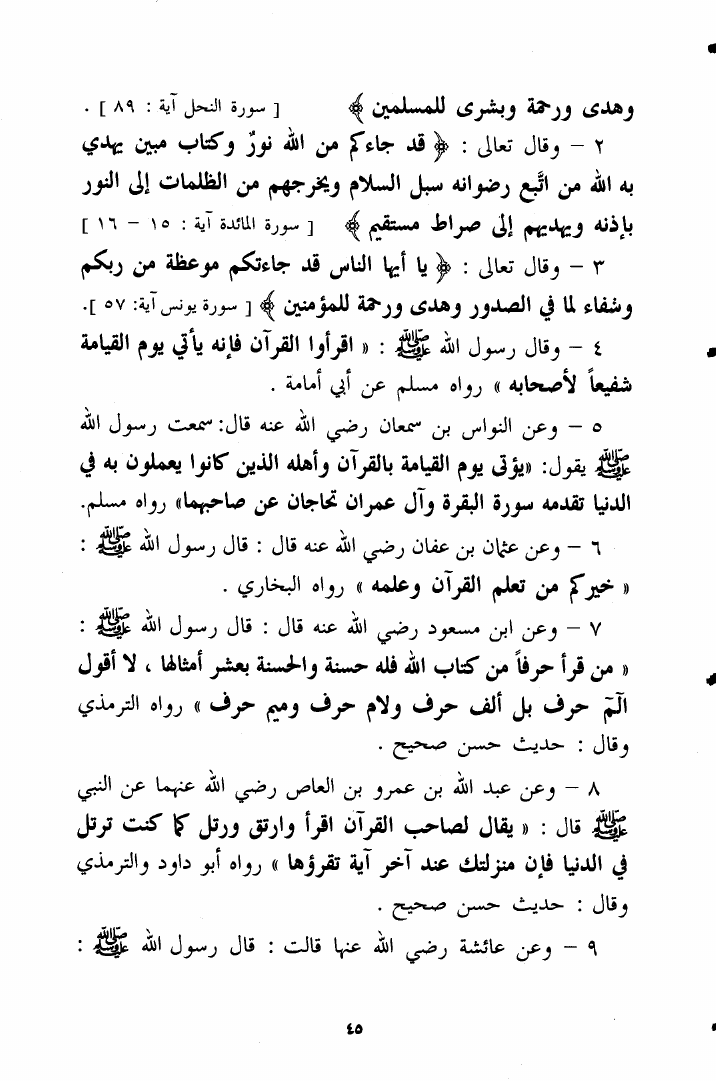 وهدى ورحمة وبشرى للمسلمين ﴾ [ سورة النحل آية : ٨٩ ] .
٢ – وقال تعالى : ﴿ قد جاءكم من الله نورٌ وكتاب مبين يهدي
به الله من اتَّبع رضوانه سبل السلام ويخرجهم من الظلمات إلى النور
بإذنه ويهديهم إلى صراط مستقيم ﴾ [ سورة المائدة آية : ١٥ – ١٦ ]
٣ – وقال تعالى : ﴿ يا أيها الناس قد جاءتكم موعظة من ربكم
وشفاء لما في الصدور وهدى ورحمة للمؤمنين ﴾ [ سورة يونس آية: ٥٧ ].
٤ – وقال رسول الله ﷺ : « اقرأوا القرآن فإنه يأتي يوم القيامة
شفيعاً لأصحابه » رواه مسلم عن أبي أمامة .
٥ – وعن النواس بن سمعان رضي الله عنه قال: سمعت رسول الله
ﷺ يقول: «يؤتى يوم القيامة بالقرآن وأهله الذين كانوا يعملون به في
الدنيا تقدمه سورة البقرة وآل عمران تحاجان عن صاحبهما» رواه مسلم.
٦ – وعن عثمان بن عفان رضي الله عنه قال : قال رسول الله ﷺ :
« خيركم من تعلم القرآن وعلمه » رواه البخاري .
٧ – وعن ابن مسعود رضي الله عنه قال : قال رسول الله ﷺ :
« من قرأ حرفاً من كتاب الله فله حسنة والحسنة بعشر أمثالها ، لا أقول
الٓمٓ حرف بل ألف حرف ولام حرف وميم حرف » رواه الترمذي
وقال : حديث حسن صحيح .
٨ – وعن عبد الله بن عمرو بن العاص رضي الله عنهما عن النبي
ﷺ قال : « يقال لصاحب القرآن اقرأ وارتق ورتل كما كنت ترتل
في الدنيا فإن منزلتك عند آخر آية تقرؤها » رواه أبو داود والترمذي
وقال : حديث حسن صحيح .
٩ – وعن عائشة رضي الله عنها قالت : قال رسول الله ﷺ :
٤٥